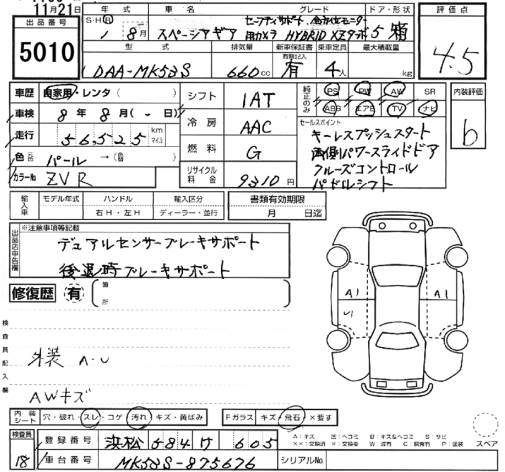 11月21日
年式 車名 グレード ドア・形状 評価点
出品番号
5010
S・H・R 1年 8月 スペーシアギア セーフティサポート 全方位モニター
用カメラ HYBRID XZターボ 5 箱
4.5
型式 排気量 新車保証書 乗車定員 最大積載量
DAA-MK53S 660cc 有 4人 kg
車歴 自家用・レンタ( )
シフト 1AT
純正のみ PS PW AW SR
ABS エアB TV ナビ
内装評価
b
車検 8年 8月( - 日)
走行 56,525 km マイル
冷房 AAC
セールスポイント
キーレスプッシュスタート
両側パワースライドドア
クルーズコントロール
パドルシフト
色 パール → ( )
燃料 G
カラーNo ZVR
リサイクル料金 9310円
輸入車 モデル年式 ハンドル 輸入区分 書類有効期限
右H・左H ディーラー・並行 月 日迄
出品店申告欄
※注意事項等記載
デュアルセンサーブレーキサポート
後退時ブレーキサポート
修復歴 有 箇所
検査員記入欄
外装 A-U
AWキズ
A1 A1
U1
内装シート 穴・破れ・スレ・コゲ 汚れ・キズ・黄ばみ Fガラス キズ・飛石・×要す
検査員
18
登録番号 浜松 584 け 605
スペア
車台番号 MK53S-875676 シリアルNo